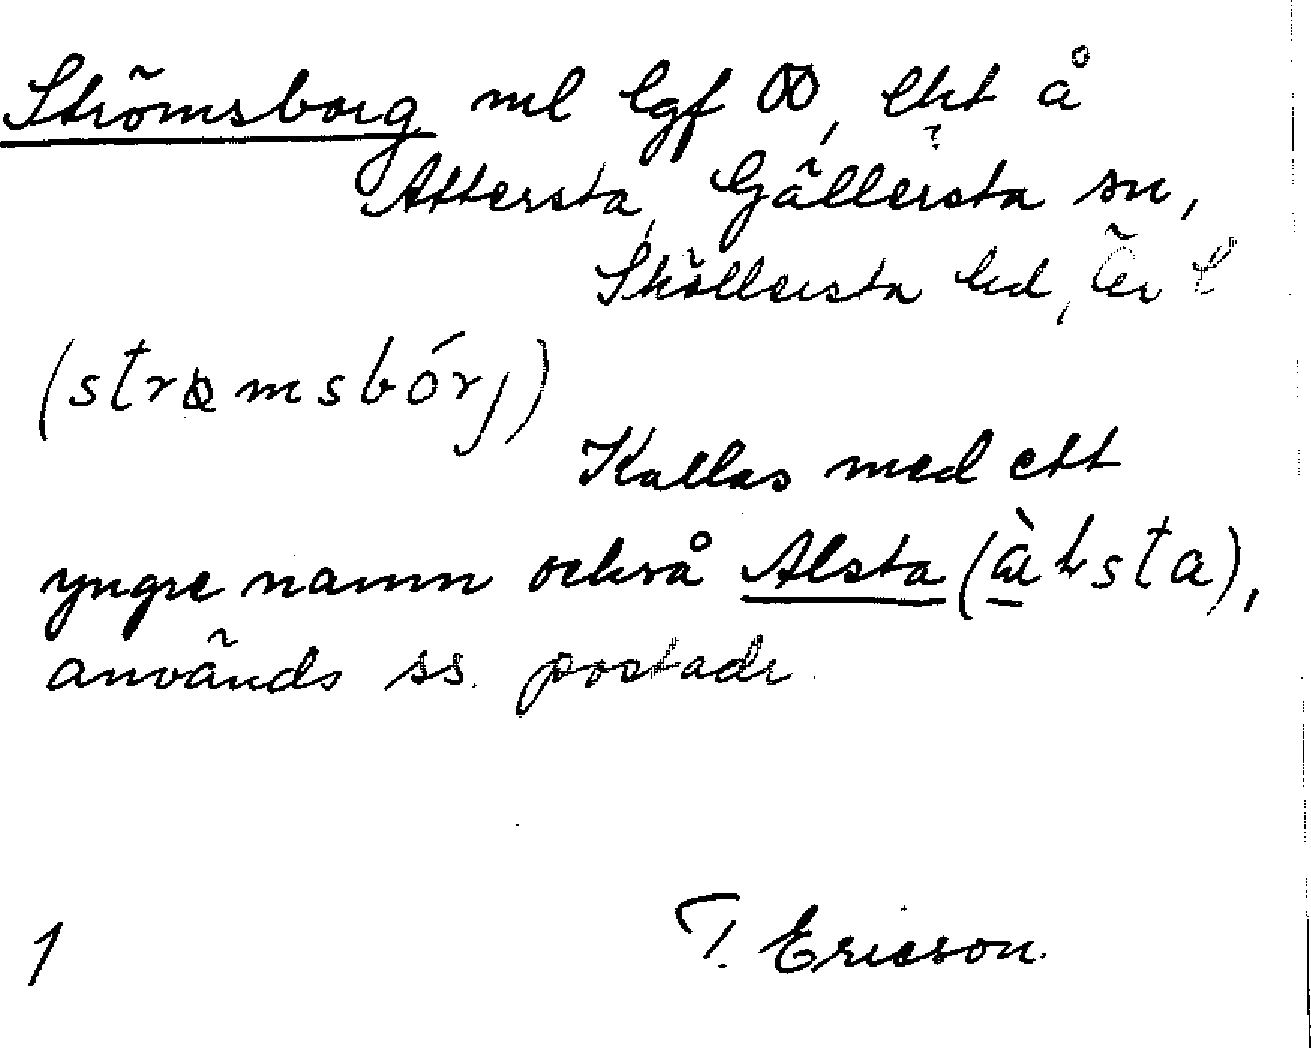 Strömsborg ml lgf OO, ekt å
Attersta, Gällersta sn,
Sköllersta hd, Ör l
(strømsbórj)
Kallas med ett
yngre namn också Alsta (àlsta),
används ss. postadr.
T. Ericson.
1